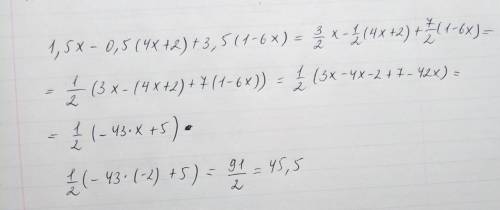 1,5x - 0,5(4x+2) + 3,5(1-6x) = 3/2 x - 1/2(4x+2) + 7/2(1-6x) =
= 1/2 (3x - (4x+2) + 7(1-6x)) = 1/2 (3x - 4x - 2 + 7 - 42x) =
= 1/2 (-43·x + 5)
1/2(-43·(-2) + 5) = 91/2 = 45,5